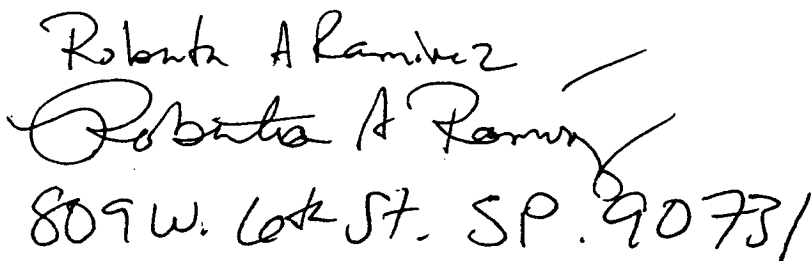 Roberta A Ramirez
Roberta A Ramirez
809 W. 6th St. SP. 90731